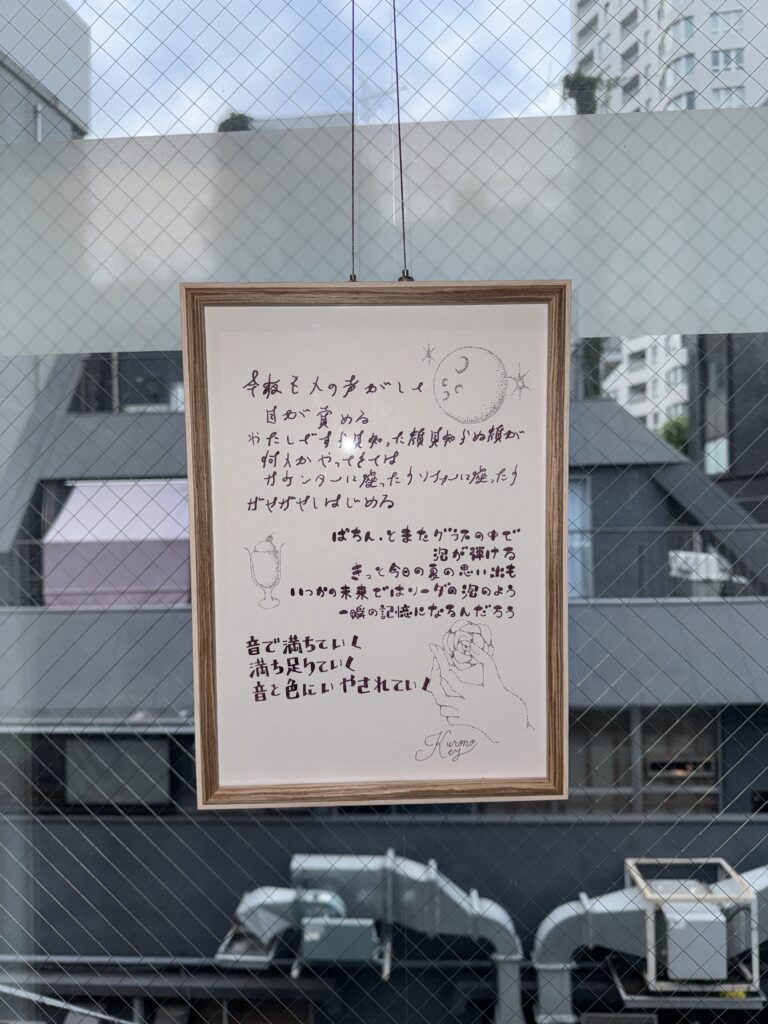 今夜も人の声がして
目が覚める
わたしざす 見知った顔見知らぬ顔が
何人かやってきては
カウンターに座ったりソファーに座ったり
ガヤガヤしはじめる
ぱちん、とまたグラスの中で
泡が弾ける
きっと今日の夏の思い出も
いつかの未来ではソーダの泡のよう
一瞬の記憶になるんだろう
音で満ちていく
満ち足りていく
音と色にいやされていく
Kurono
ey